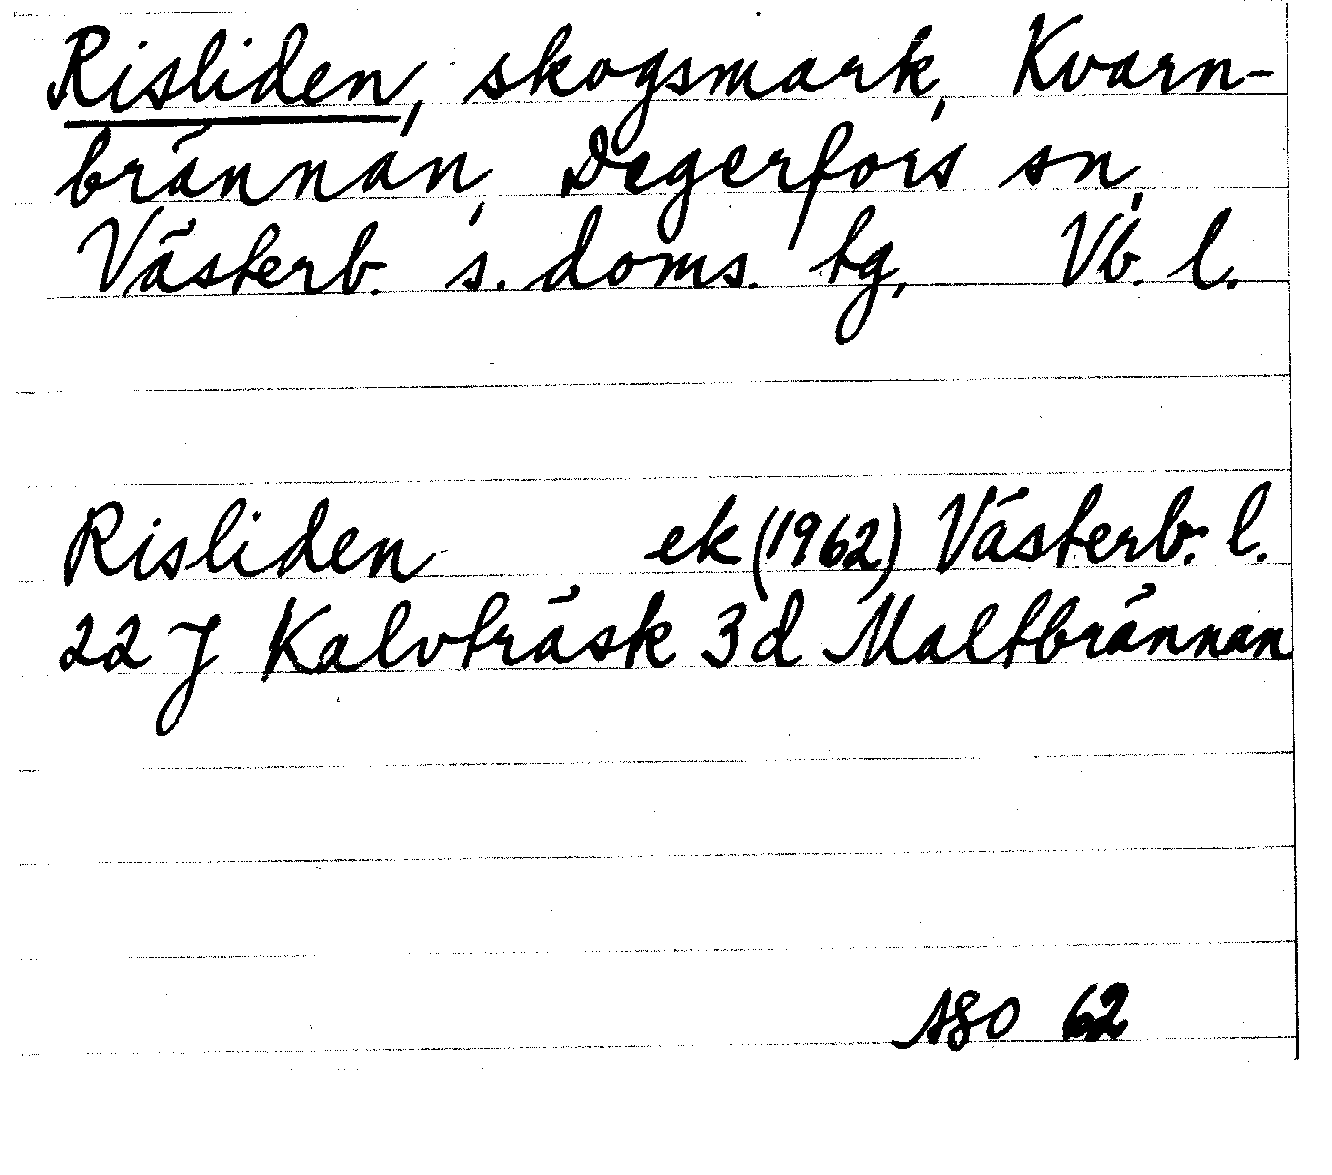 Risliden, skogsmark, Kvarn-
brännan, Degerfors sn,
Västerb. s. doms. tg, Vb. l.
Risliden ek (1962) Västerb. l.
22 J Kalvträsk 3d Maltbrännan
62